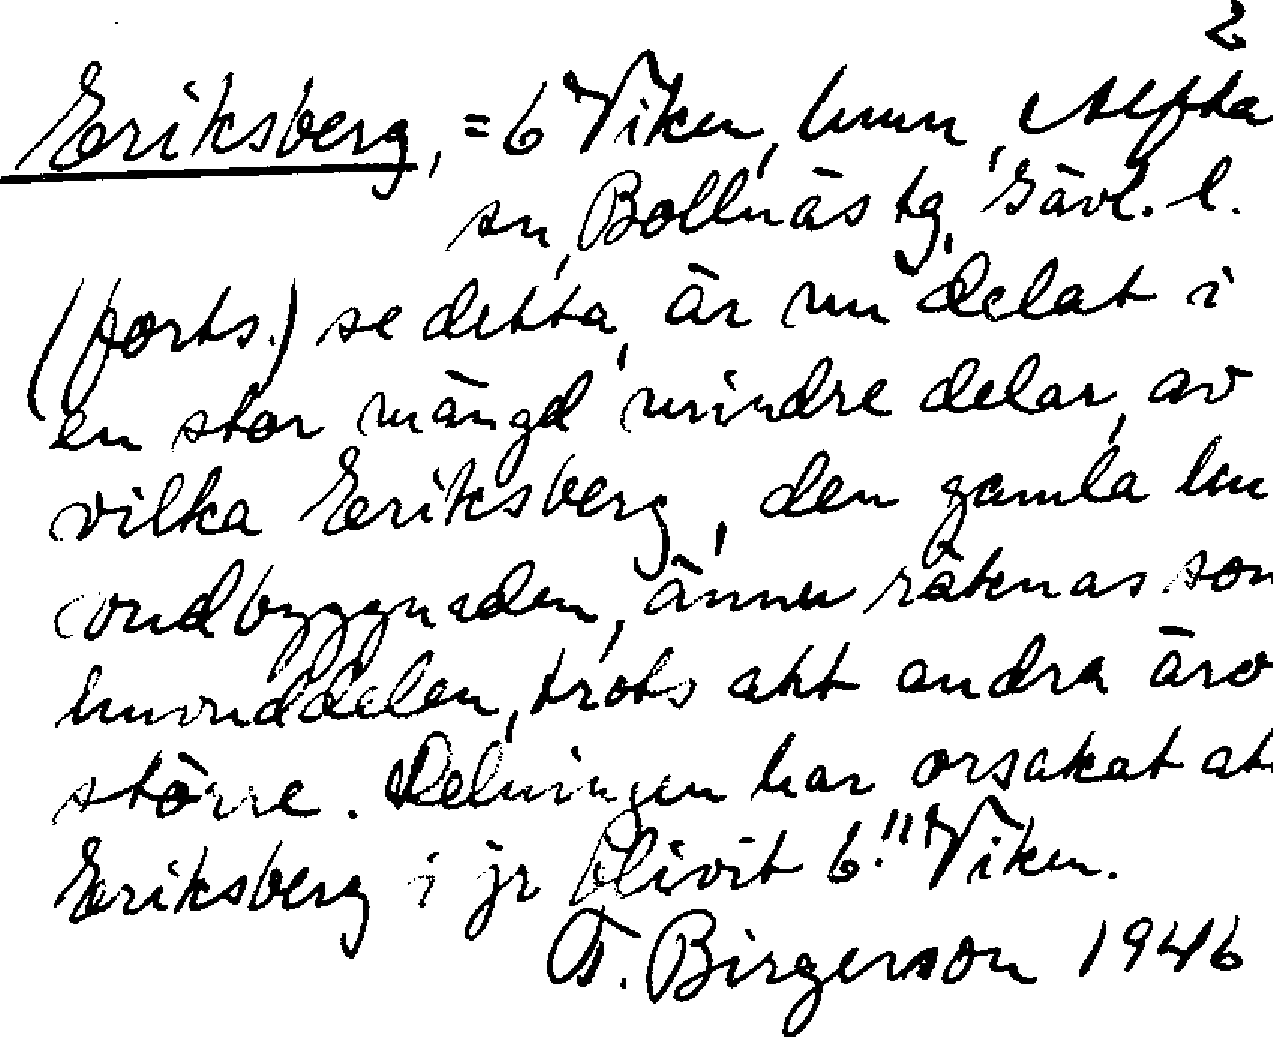 2
Eriksberg, = 6 Viken, hmn, Alfta
sn, Bollnäs tg, Gävl. l.
(forts.) se detta, är nu delat i
en stor mängd mindre delar, av
vilka Eriksberg, den gamla huv
udbyggnaden, ännu räknas som
huvuddelen, trots att andra äro
större. Delningen har orsakat att
Eriksberg i jr blivit 6:" Viken.
F. Birgerson 1946